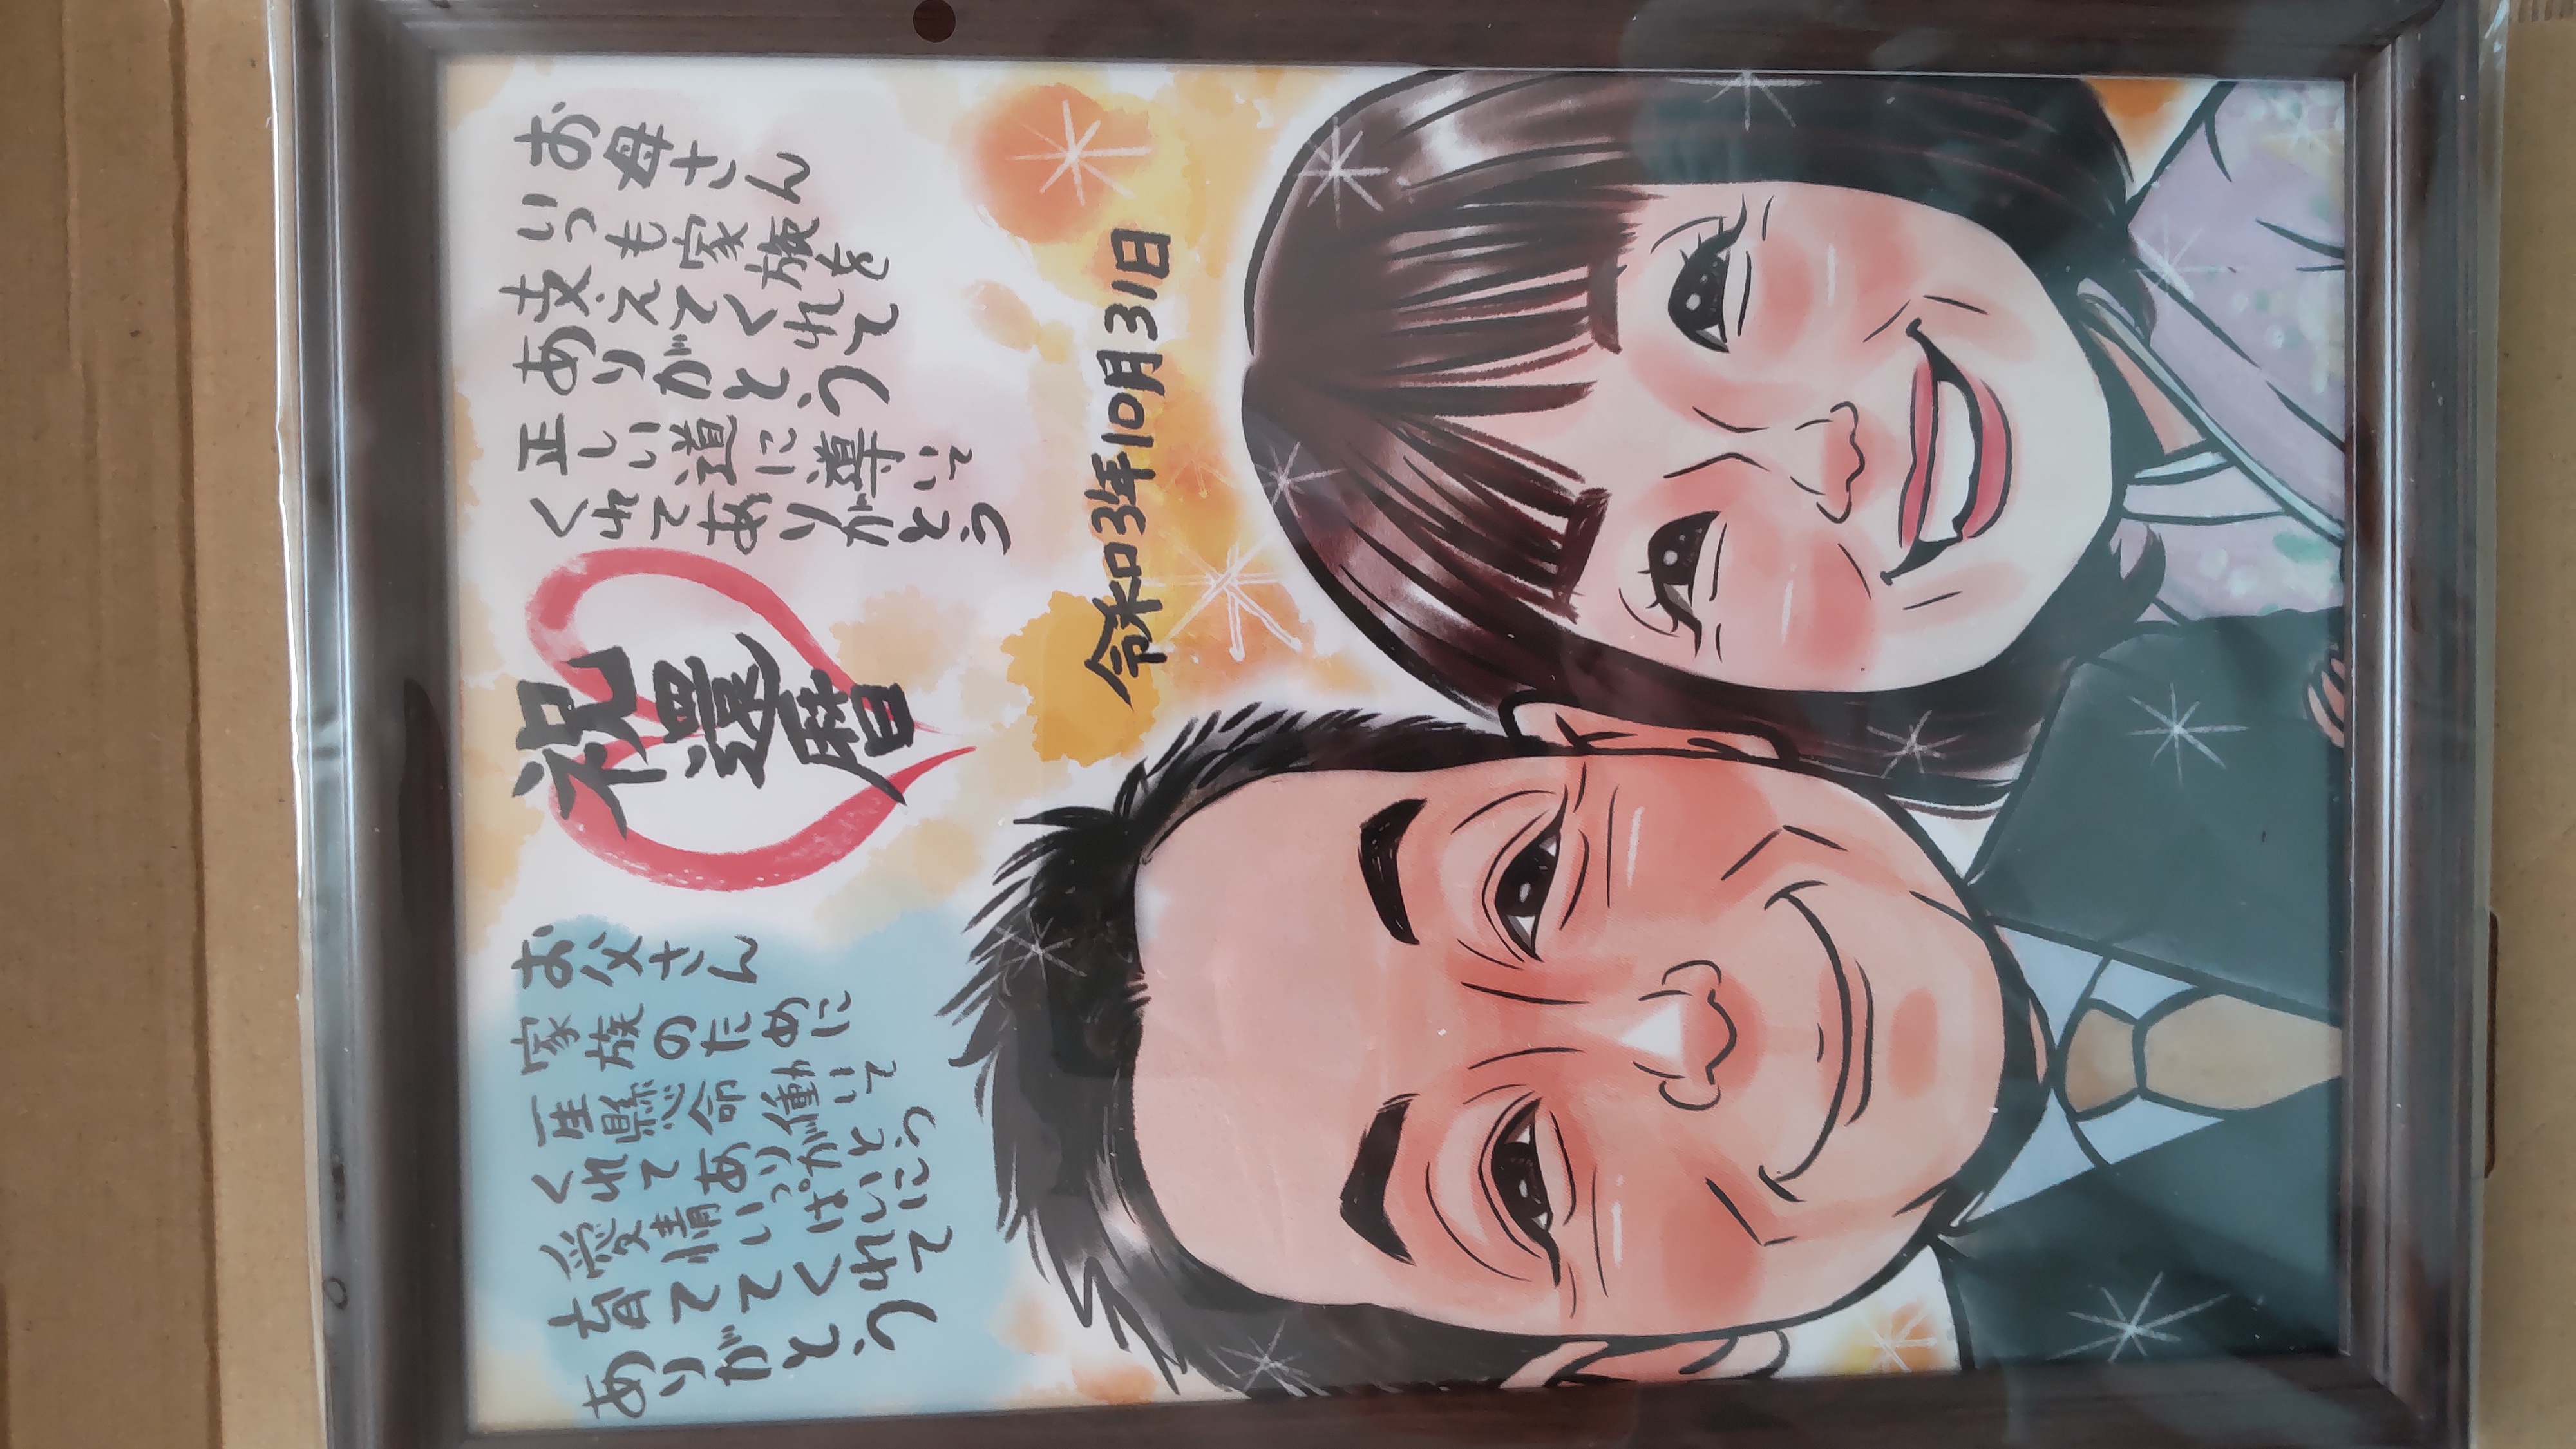 お母さん
いつも家族を
支えてくれて
ありがとう
正しい道に導いて
くれてありがとう
祝還暦
お父さん
家族のために
一生懸命働いて
くれてありがとう
愛情いっぱいに
育ててくれて
ありがとう
令和3年10月31日